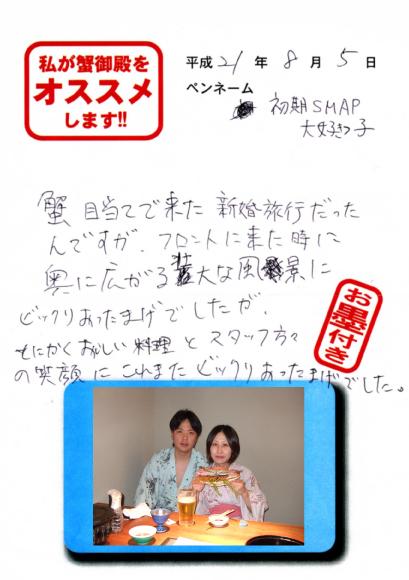 私が蟹御殿を
オススメ
します!!
平成21年8月5日
ペンネーム
初期SMAP
大好きっ子
蟹目当てで来た新婚旅行だった
んですが、フロントに来た時に
奥に広がる壮大な風景に
ビックリあったまげでしたが、
とにかくおいしい料理とスタッフ方々
の笑顔にこれまたビックリあったまげでした。
お墨付き